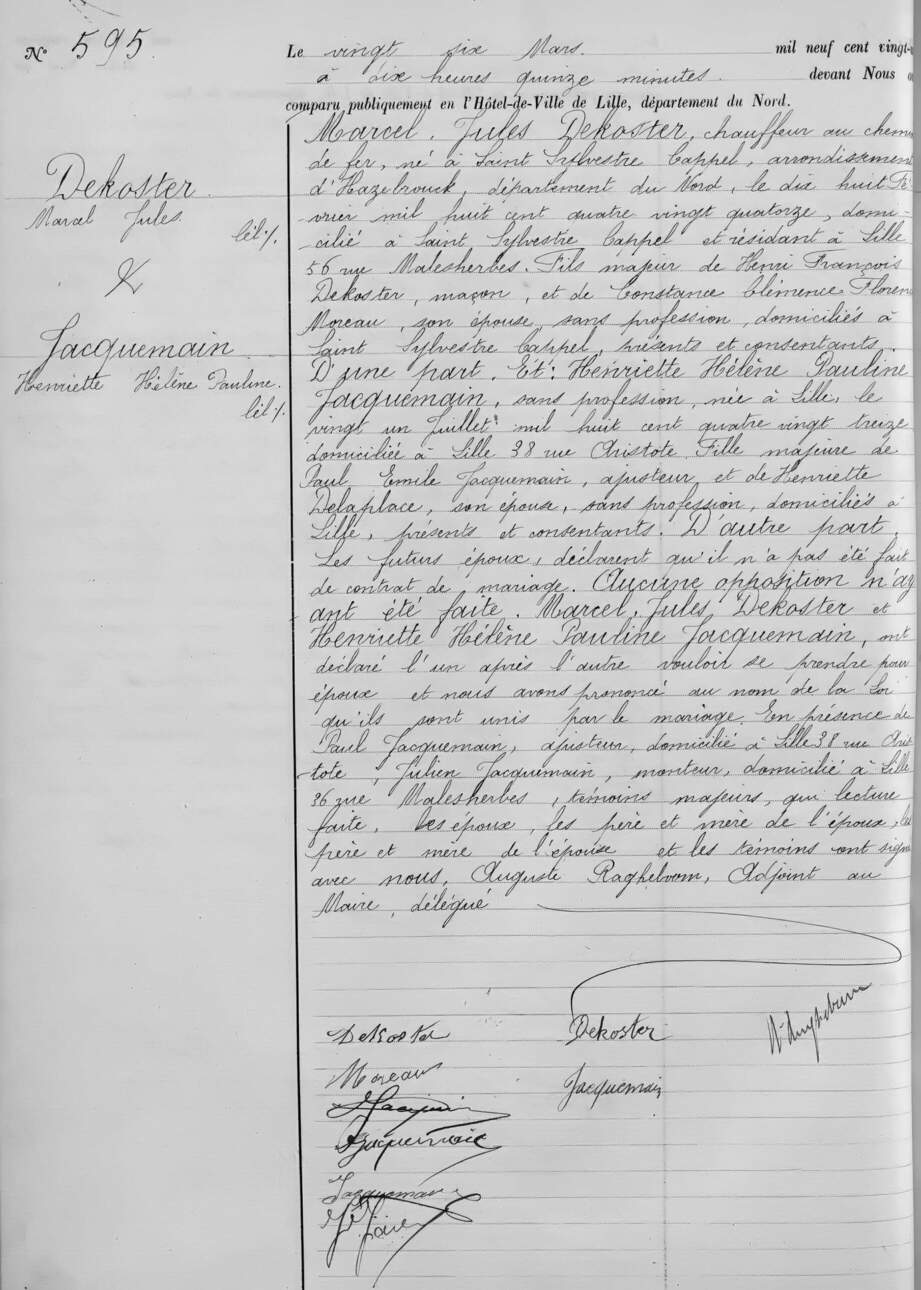 N° 595
Le vingt six Mars. mil neuf cent vingt-
à dix heures quinze minutes. devant Nous
comparu publiquement en l'Hôtel-de-Ville de Lille, département du Nord.
Dekoster
Marcel Jules
&
Jacquemain
Henriette Hélène Pauline.
Marcel, Jules Dekoster, chauffeur au chem
de fer, né à Saint Sylvestre Cappel, arrondissement
d'Hazebrouck, département du Nord, le dix huit Fé-
vrier mil huit cent quatre vingt quatorze, domi-
cilié à Saint Sylvestre Cappel et résidant à Lille
56 rue Malesherbes. Fils majeur de Henri François
Dekoster, maçon, et de Constance Clémence Floren
Moreau, son épouse, sans profession, domiciliés à
Saint Sylvestre Cappel, présents et consentants.
D'une part. Et: Henriette Hélène Pauline
Jacquemain, sans profession, née à Lille, le
vingt un Juillet mil huit cent quatre vingt treize
domiciliée à Lille 38 rue Aristote. Fille majeure de
Paul Emile Jacquemain, ajusteur, et de Henriette
Delaplace, son épouse, sans profession, domiciliés à
Lille, présents et consentants. D'autre part.
Les futurs époux, déclarent qu'il n'a pas été fait
de contrat de mariage. Aucune opposition n'ay
ant été faite. Marcel, Jules Dekoster et
Henriette Hélène Pauline Jacquemain, ont
déclaré l'un après l'autre vouloir se prendre pour
époux et nous avons prononcé au nom de la Loi
qu'ils sont unis par le mariage. En présence de
Paul Jacquemain, ajusteur, domicilié à Lille 38 rue Aris
tote, Julien Jacquemain, moniteur, domicilié à Lille
36 rue Malesherbes, témoins majeurs, qui lecture
faite, les époux, les père et mère de l'époux, les
père et mère de l'épouse et les témoins ont signé
avec nous, Auguste Ragheboom, Adjoint au
Maire, délégué
Dekoster Dekoster
Moreau
Jacquemain
Jacquemain
Jacquemain